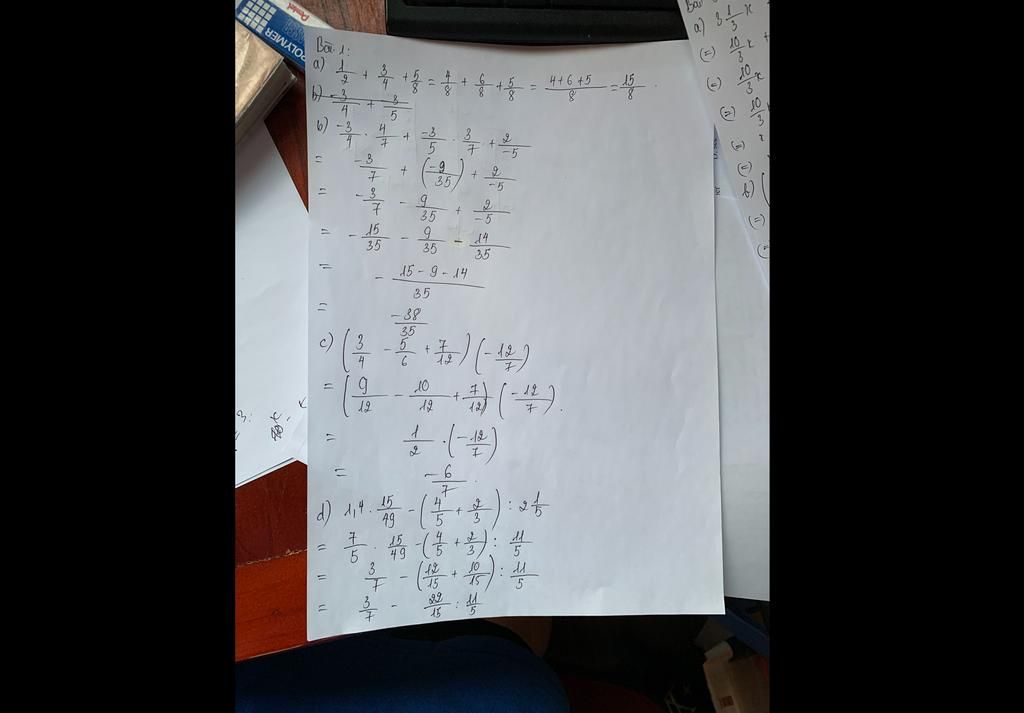 Pentel
POLYMER
Bài 1:
a) 1/2 + 3/4 + 5/8 = 4/8 + 6/8 + 5/8 = (4+6+5)/8 = 15/8
b) -3/4 + 3/5
b) -3/4 . 4/7 + -3/5 . 3/7 + 2/-5
= -3/7 + (-9/35) + 2/-5
= -3/7 - 9/35 + 2/-5
= -15/35 - 9/35 - 14/35
= -(15-9-14)/35
= -38/35
c) (3/4 - 5/6 + 7/12) (-12/7)
= (9/12 - 10/12 + 7/12) (-12/7).
= 1/2 . (-12/7)
= -6/7.
d) 1,4 . 15/49 - (4/5 + 2/3) : 2 1/5
= 7/5 . 15/49 - (4/5 + 2/3) : 11/5
= 3/7 - (12/15 + 10/15) : 11/5
= 3/7 - 22/15 : 11/5
a) 3 1/3 x
(=) 10/3 x +
(=) 10/3 x
(=) 10/3
(=)
(=)
b) (
(=)
(=